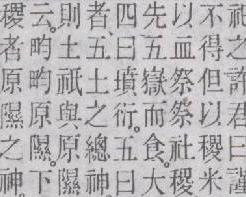 神之許君曰謹
不得但以稷米
以血祭祭社稷
先五嶽而食大
四曰墳衍五曰
者五土之總神
則土祇與原隰
云畇畇原隰下
稷者原隰之神